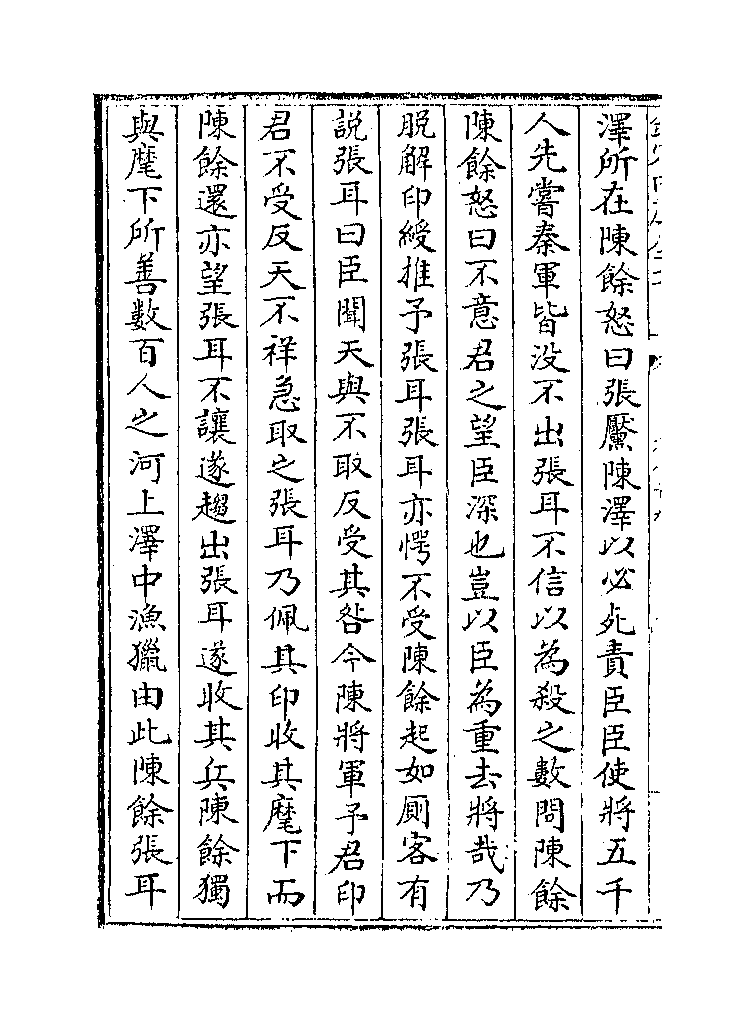 澤所在陳餘怒曰張黶陳澤以必死責臣臣使將五千
人先嘗秦軍皆没不出張耳不信以為殺之數問陳餘
陳餘怒曰不意君之望臣深也豈以臣為重去將哉乃
脱解印綬推予張耳張耳亦愕不受陳餘起如厠客有
説張耳曰臣聞天與不取反受其咎今陳將軍予君印
君不受反天不祥急取之張耳乃佩其印收其麾下而
陳餘還亦望張耳不讓遂趨出張耳遂收其兵陳餘獨
與麾下所善數百人之河上澤中漁獵由此陳餘張耳